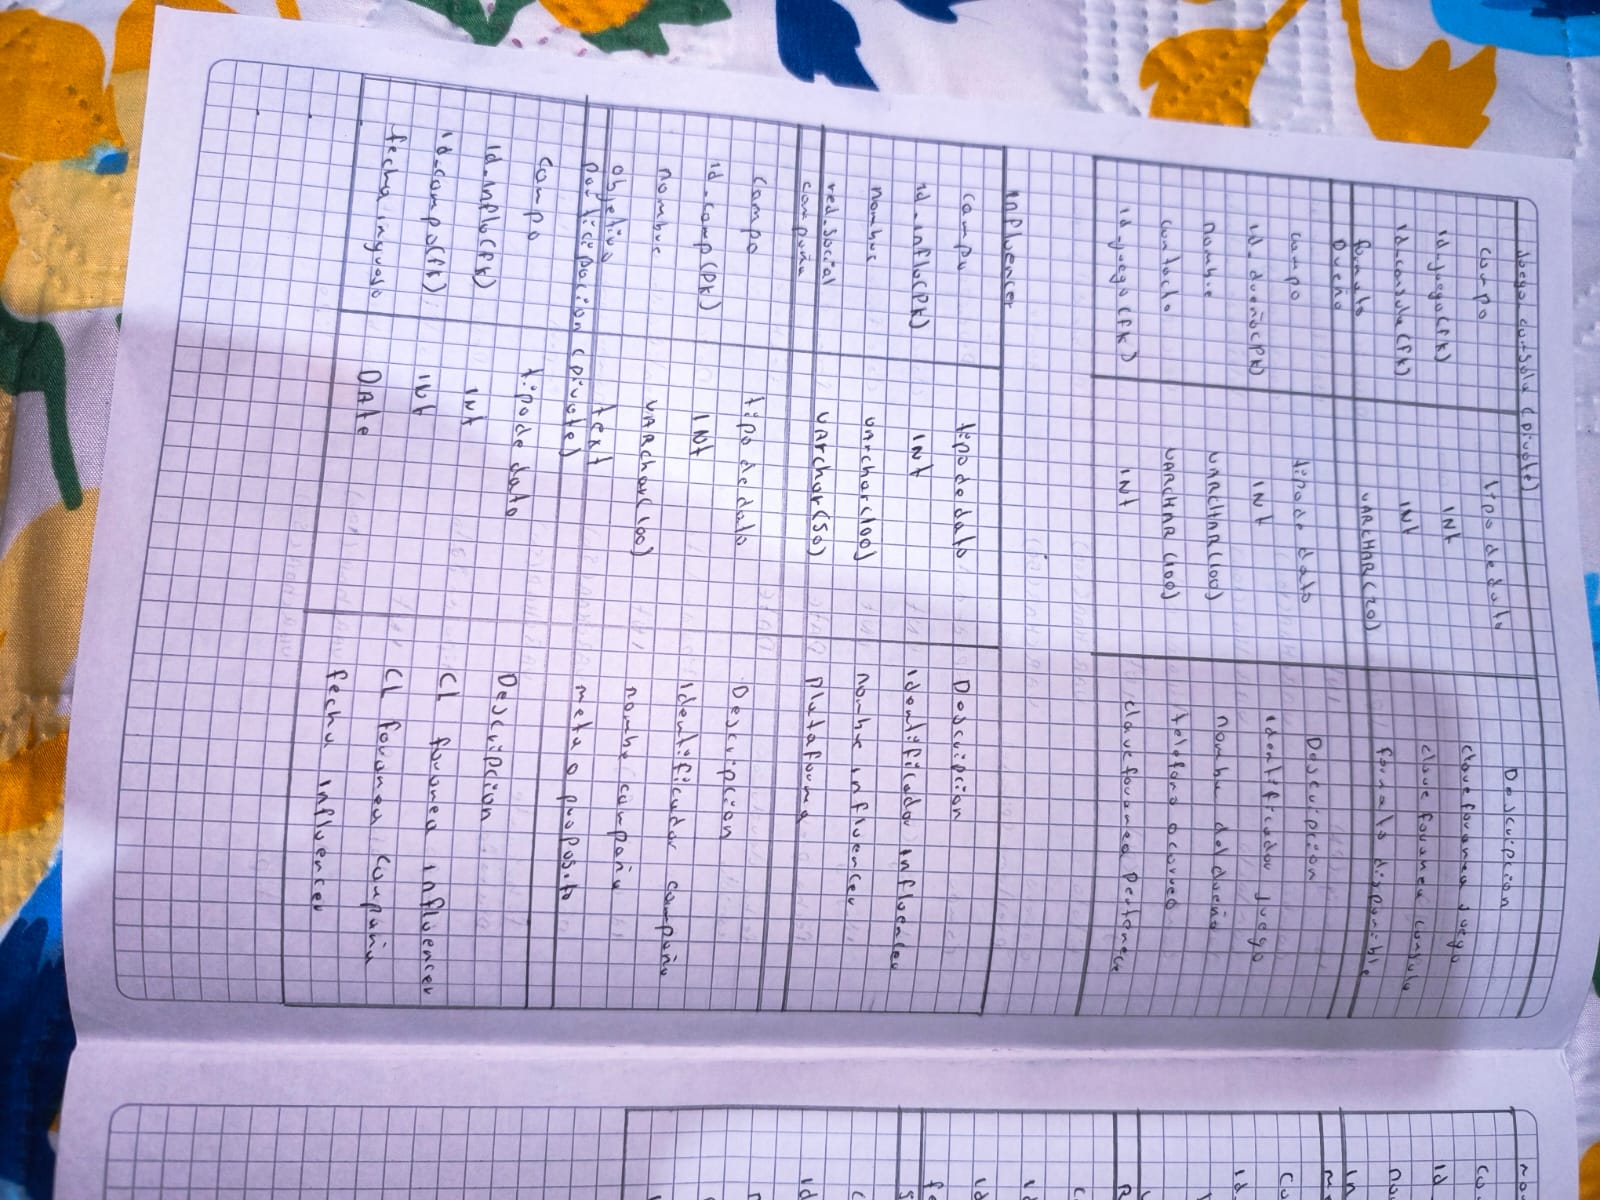 Juego consola (pivote)
campo tipo de dato Descripcion
id_juego(fk) INt clave foranea juego
id_consola(fk) INt clave foranea consola
formato VARCHAR(20) formato disponible
Dueño
campo tipo de dato Descripcion
id_dueño(PK) INt identificador juego
nombre VARCHAR(100) nombre del dueño
contacto VARCHAR(100) telefono o correo
id_juego(fk) INt clave foranea pertenece
influencer
campo tipo de dato Descripcion
id_influ(PK) INt identificador influencer
nombre varchar(100) nombre influencer
red_social VArchar(50) plataforma
campaña
campo tipo de dato Descripcion
id_camp(PK) INt identificador campaña
nombre VARchar(100) nombre campaña
objetivo text meta o proposito
participacion (pivote)
campo tipo de dato Descripcion
id_influ(fk) INt CL foranea influencer
id_campo(fk) INt CL foranea campaña
fecha ingreso DAte fecha influencer